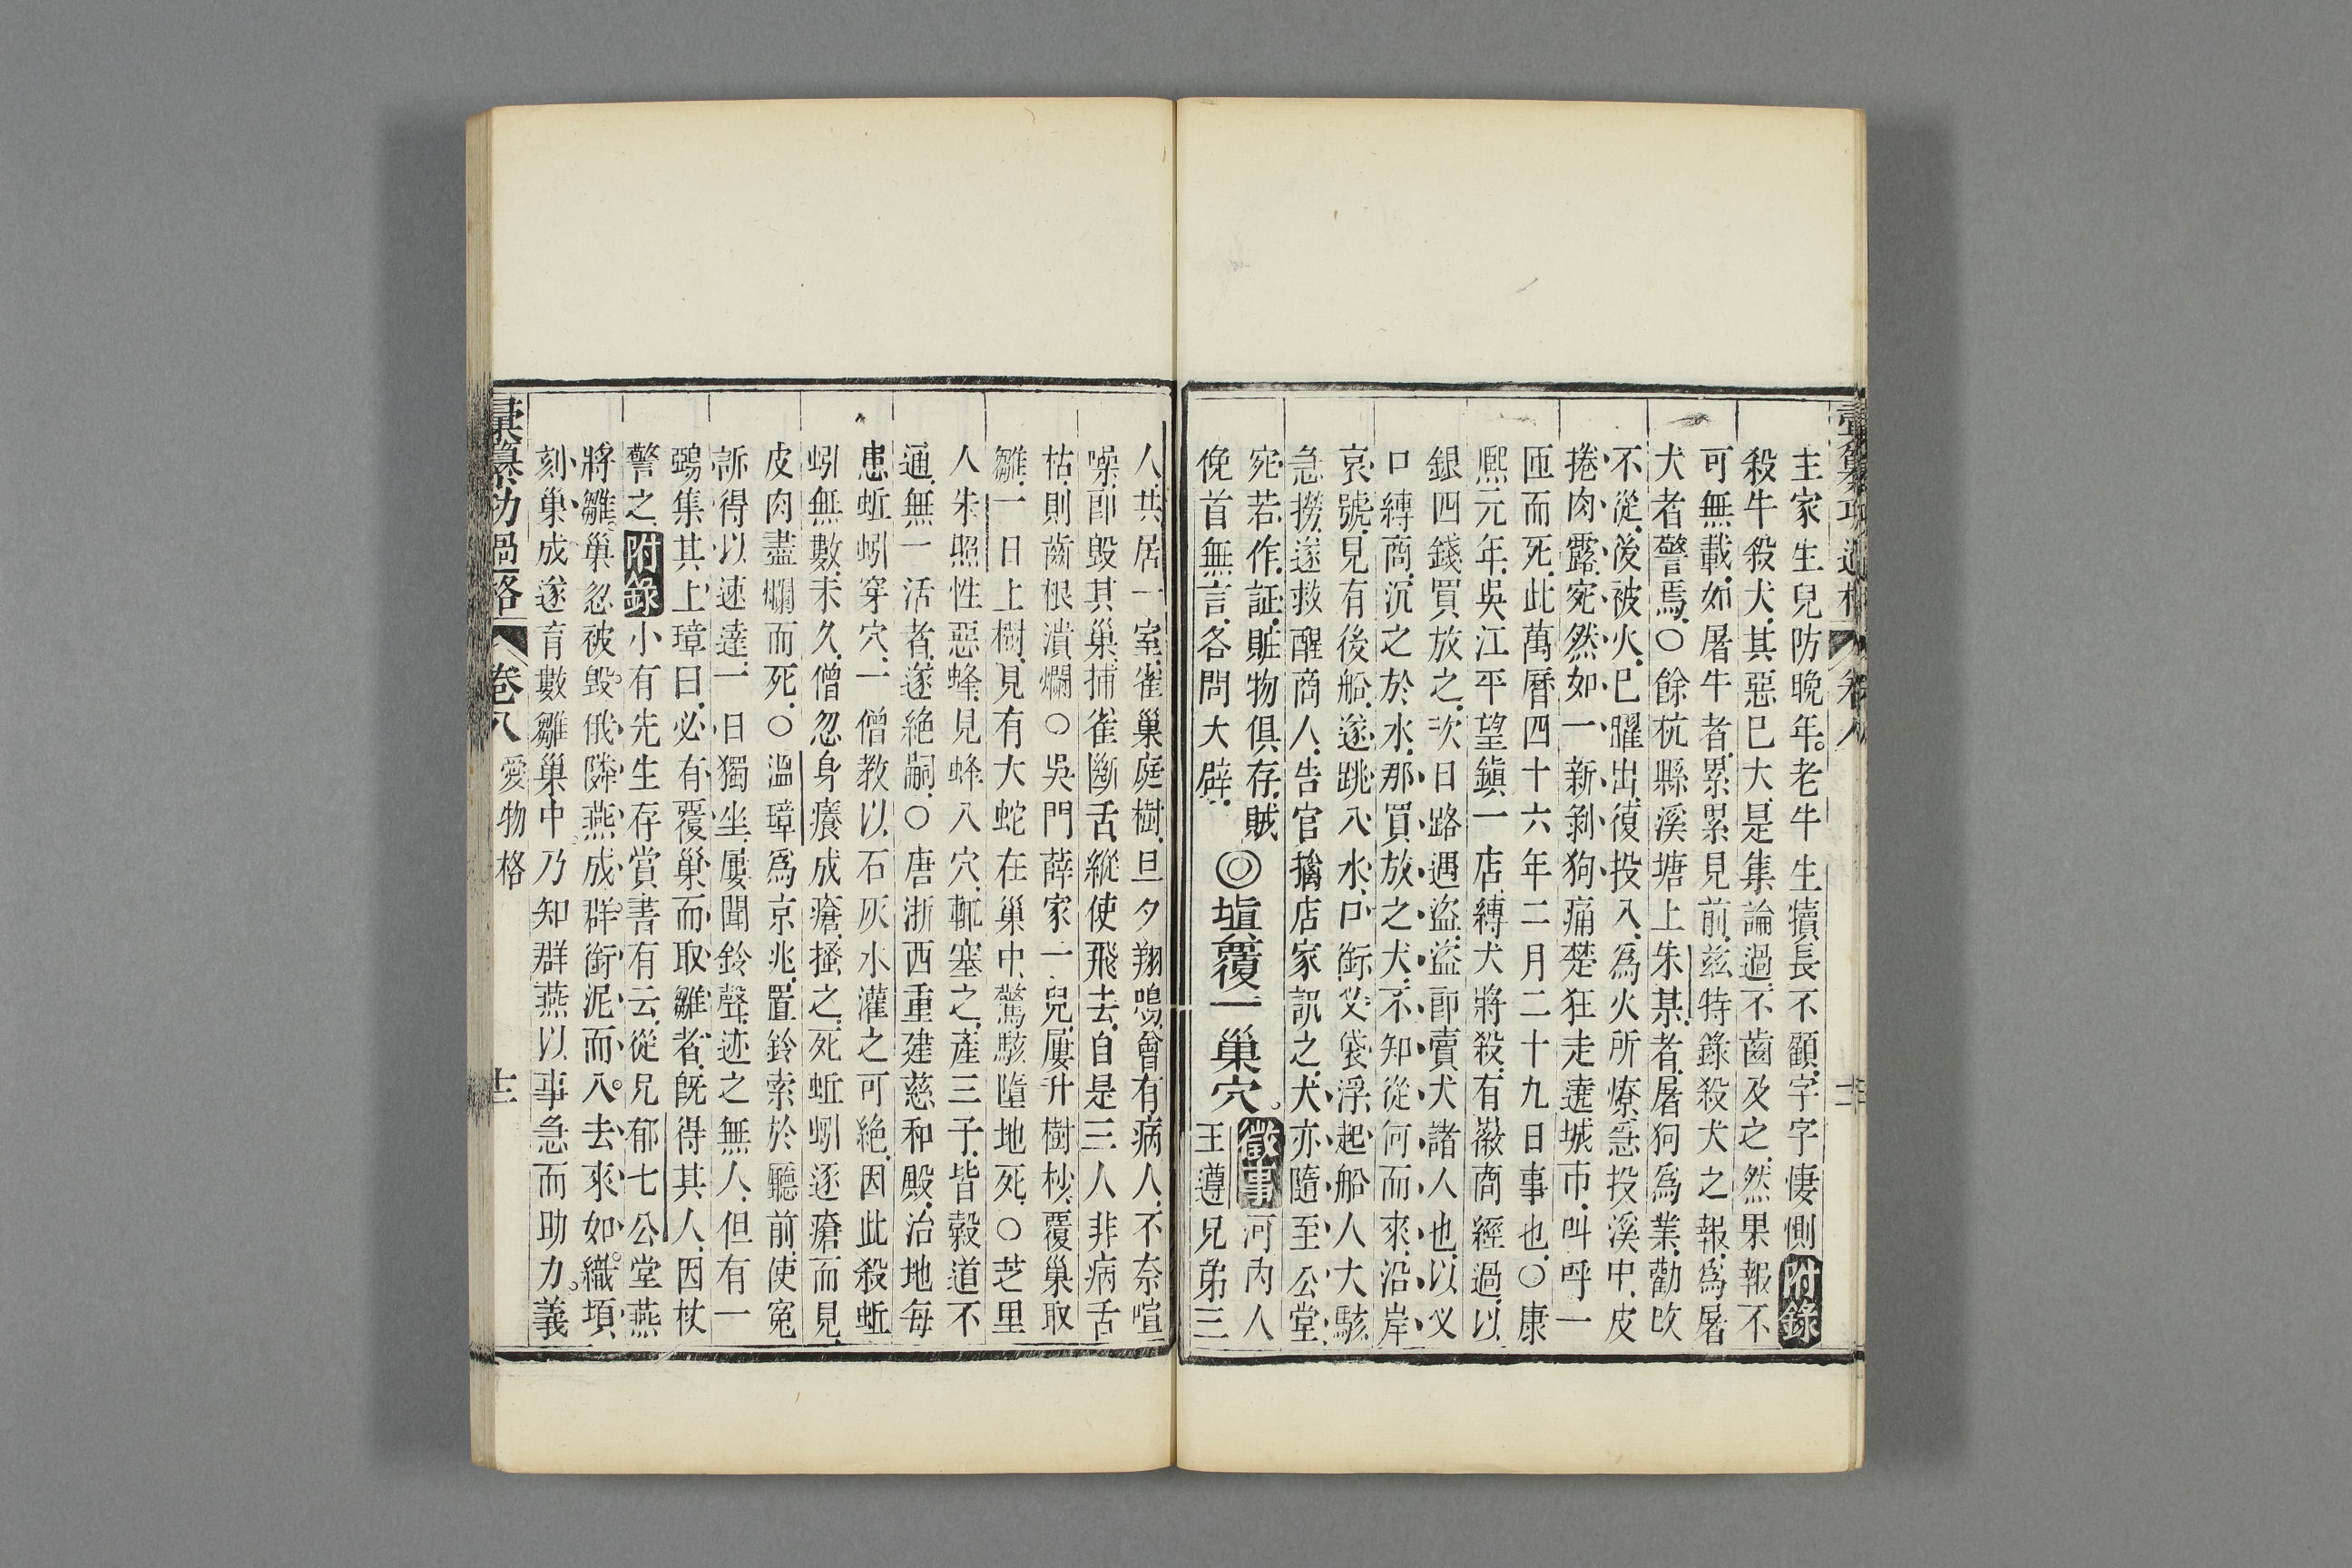 主家生兒防晚年。老牛生犢長不顧。字字悽惻附錄
殺牛殺犬。其惡已大。是集論過。不齒及之。然果報不
可無載。如屠牛者。累累見前。兹特錄殺犬之報。爲屠
犬者警焉。○餘杭縣溪塘上朱某者。屠狗爲業。勸改
不從。後被火。已躍出。復投入。爲火所燎。急投溪中。皮
捲肉露。宛然如一新剝狗。痛楚狂走遶城市。叫呼一
匝而死。此萬曆四十六年二月二十九日事也。○康
熙元年。吳江平望鎮一店。縛犬將殺。有徽商經過。以
銀四錢買放之。次日路遇盜。盜卽賣犬諸人也。以义
口縛商。沉之於水。那買放之犬。不知從何而來。沿岸
哀號。見有後船。遂跳入水。口銜义袋浮起。船人大駭
急撈。遂救醒商人。告官擒店家訊之。犬亦隨至公堂。
宛若作証。賍物俱存。賊
俛首無言。各問大辟。
◎塡覆一巢穴。
徵事河內人
王遵兄弟三
人。共居一室。雀巢庭樹。旦夕翔鳴。曾有病人。不奈喧
噪。卽毀其巢。捕雀斷舌。縱使飛去。自是三人非病舌
枯。則齒根潰爛○吳門薛家一兒。屢升樹杪。覆巢取
雛。一日上樹。見有大蛇在巢中。驚駭墮地死。○芝里
人朱照性惡蜂。見蜂入穴。輒塞之。產三子。皆穀道不
通。無一活者。遂絶嗣。○唐浙西重建慈和殿。治地每
患蚯蚓穿穴。一僧教以石灰水灌之可絶。因此殺蚯
蚓無數。未久。僧忽身癢成瘡。搔之。死蚯蚓逐瘡而見。
皮肉盡爛而死。○溫璋爲京兆。置鈴索於廳前。使冤
訴得以速達。一日獨坐。屢聞鈴聲。迹之無人。但有一
鵶集其上。璋曰。必有覆巢而取雛者。旣得其人。因杖
警之。附錄小有先生存賞書有云。從兄郁七公堂燕
將雛。巢忽被毀。俄隣燕成群。銜泥而入。去來如織。頃
刻巢成。遂育數雛巢中。乃知群燕以事急而助力。義
彙纂功過格 卷八 愛物格